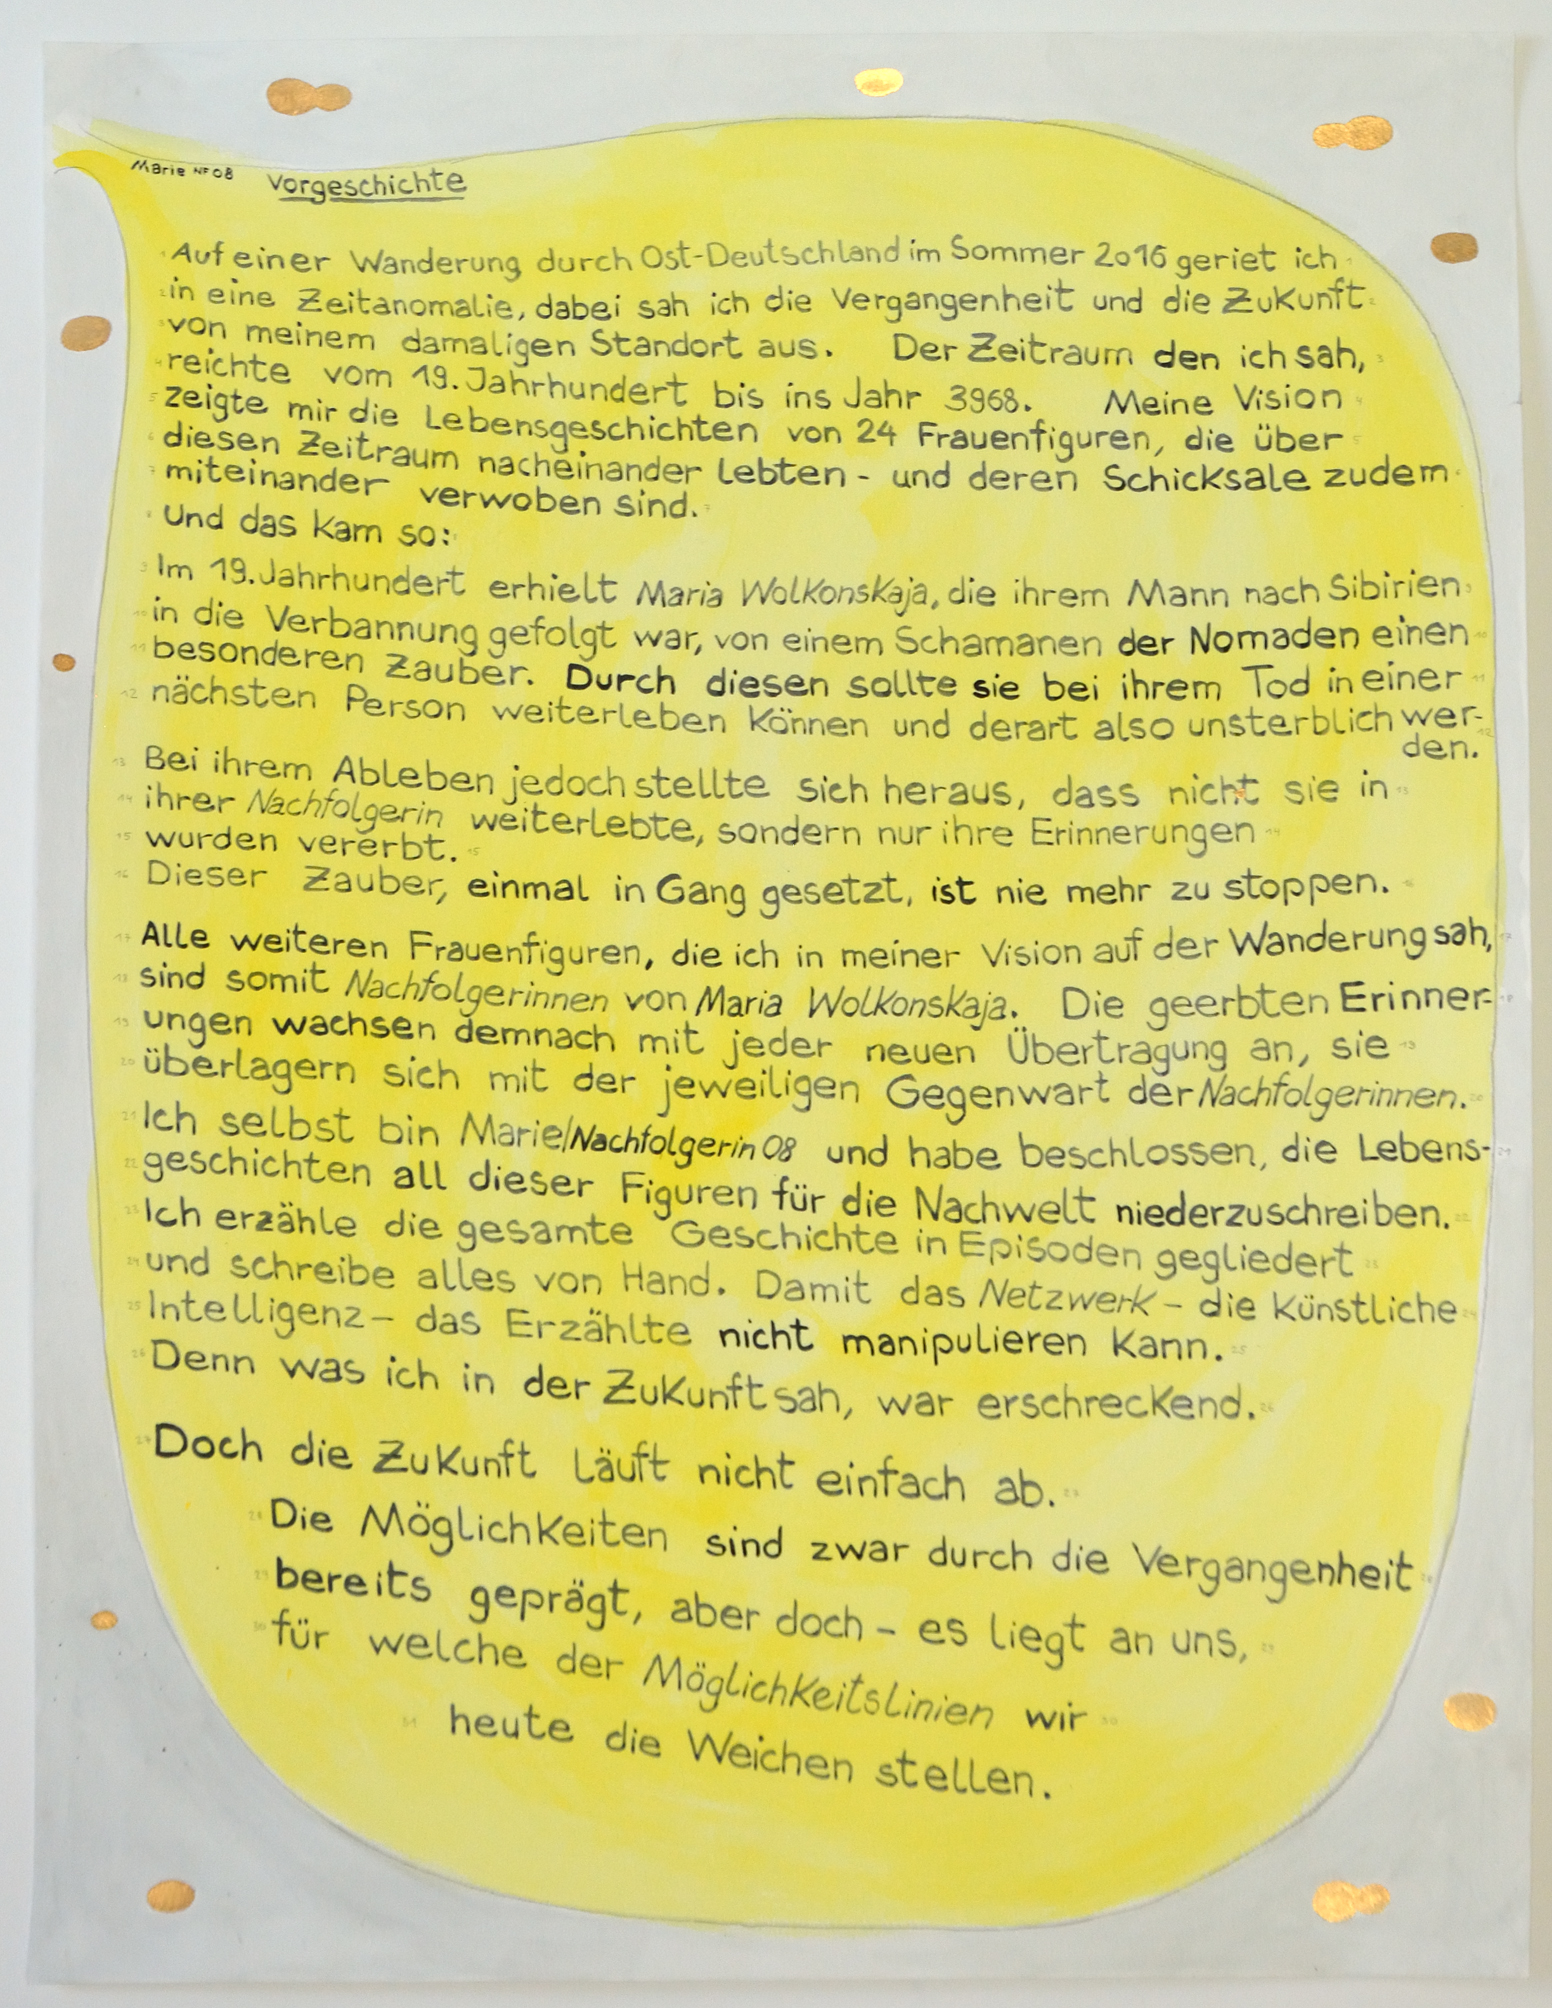 Marie NF08 Vorgeschichte
1 Auf einer Wanderung durch Ost-Deutschland im Sommer 2016 geriet ich 1
2 in eine Zeitanomalie, dabei sah ich die Vergangenheit und die Zukunft 2
3 von meinem damaligen Standort aus. Der Zeitraum den ich sah, 3
4 reichte vom 19. Jahrhundert bis ins Jahr 3968. Meine Vision 4
5 zeigte mir die Lebensgeschichten von 24 Frauenfiguren, die über 5
6 diesen Zeitraum nacheinander lebten - und deren Schicksale zudem 6
7 miteinander verwoben sind. 7
8 Und das kam so: 8
9 Im 19. Jahrhundert erhielt Maria Wolkonskaja, die ihrem Mann nach Sibirien 9
10 in die Verbannung gefolgt war, von einem Schamanen der Nomaden einen 10
11 besonderen Zauber. Durch diesen sollte sie bei ihrem Tod in einer 11
12 nächsten Person weiterleben können und derart also unsterblich wer- 12
den.
13 Bei ihrem Ableben jedoch stellte sich heraus, dass nicht sie in 13
14 ihrer Nachfolgerin weiterlebte, sondern nur ihre Erinnerungen 14
15 wurden vererbt. 15
16 Dieser Zauber, einmal in Gang gesetzt, ist nie mehr zu stoppen. 16
17 Alle weiteren Frauenfiguren, die ich in meiner Vision auf der Wanderung sah, 17
18 sind somit Nachfolgerinnen von Maria Wolkonskaja. Die geerbten Erinner- 18
19 ungen wachsen demnach mit jeder neuen Übertragung an, sie 19
20 überlagern sich mit der jeweiligen Gegenwart der Nachfolgerinnen. 20
21 Ich selbst bin Marie/Nachfolgerin 08 und habe beschlossen, die Lebens- 21
22 geschichten all dieser Figuren für die Nachwelt niederzuschreiben. 22
23 Ich erzähle die gesamte Geschichte in Episoden gegliedert 23
24 und schreibe alles von Hand. Damit das Netzwerk – die Künstliche 24
25 Intelligenz – das Erzählte nicht manipulieren kann. 25
26 Denn was ich in der Zukunft sah, war erschreckend. 26
27 Doch die Zukunft läuft nicht einfach ab. 27
28 Die Möglichkeiten sind zwar durch die Vergangenheit 28
29 bereits geprägt, aber doch – es liegt an uns, 29
30 für welche der Möglichkeitslinien wir 30
31 heute die Weichen stellen.